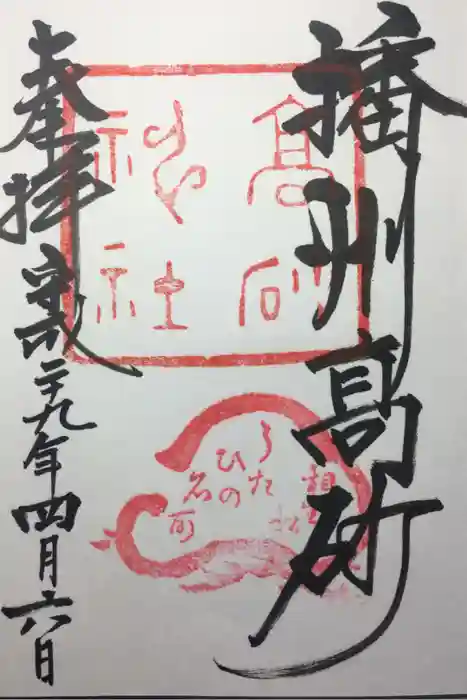 播州高砂
奉拝 平成二十九年四月六日
高砂
神社
相生
松
うた
ひの
名所